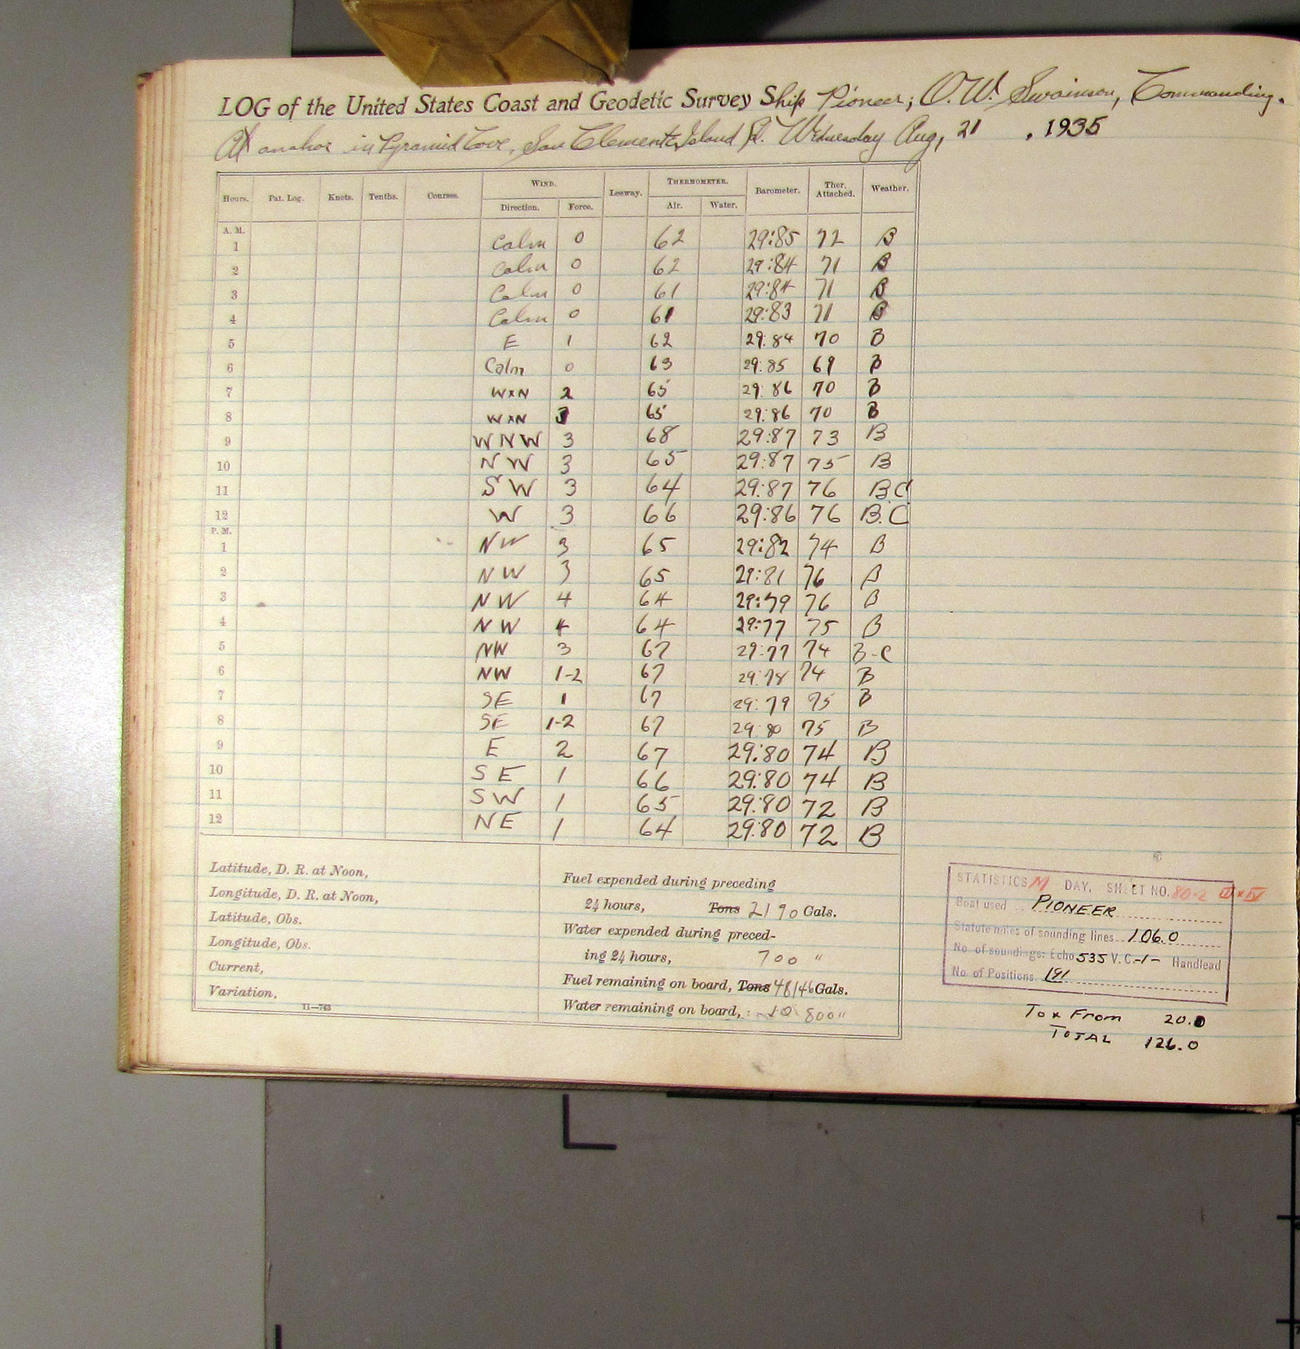 LOG of the United States Coast and Geodetic Survey Ship Pioneer; O.W. Swainson, Commanding.
At anchor in Pyramid Cove, San Clemente Island Wednesday Aug, 21, 1935
Hours. Pat. Log. Knots. Tenths. Courses. WIND. Leeway. THERMOMETER. Barometer. Ther. Attached. Weather.
Direction. Force. Air. Water.
A. M.
1 Calm 0 62 29:85 72 B
2 Calm 0 62 29:84 71 B
3 Calm 0 61 29:84 71 B
4 Calm 0 61 29:83 71 B
5 E 1 62 29:84 70 B
6 Calm 0 63 29:85 69 B
7 WxN 2 65 29:86 70 B
8 WxN 3 65 29:86 70 B
9 WNW 3 68 29:87 73 B
10 NW 3 65 29:87 75 B
11 SW 3 64 29:87 76 BC
12 W 3 66 29:86 76 B.C
P. M.
1 NW 3 65 29:82 74 B
2 NW 3 65 29:81 76 B
3 NW 4 64 29:79 76 B
4 NW 4 64 29:77 75 B
5 NW 3 67 29:77 74 B-C
6 NW 1-2 67 29:78 74 B
7 SE 1 67 29:79 75 B
8 SE 1-2 67 29:80 75 B
9 E 2 67 29:80 74 B
10 SE 1 66 29:80 74 B
11 SW 1 65 29:80 72 B
12 NE 1 64 29:80 72 B
Latitude, D. R. at Noon,
Longitude, D. R. at Noon,
Latitude, Obs.
Longitude, Obs.
Current,
Variation,
11—763
Fuel expended during preceding
24 hours, Tons 2190 Gals.
Water expended during preced-
ing 24 hours, 700 "
Fuel remaining on board, Tons 48146 Gals.
Water remaining on board, 800"
STATISTICS M DAY, SHEET NO. 80-2
Boat used PIONEER
Statute miles of sounding lines 106.0
No. of soundings: Echo 535 V.C. -1- Handlead
No. of Positions 191
To & From 20.0
TOTAL 126.0